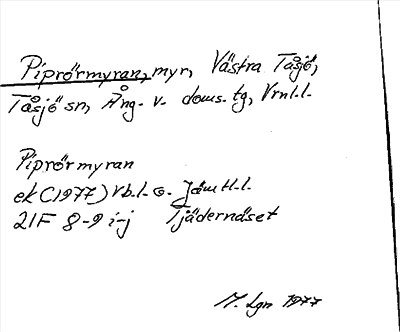 Piprörmyran, myr, Västra Tåsjö,
Tåsjö sn, Ång. v. doms. tg, Vrnl.l.
Piprörmyran
ek (1977) Vb.l. o. Jämtl.l.
21F 8-9 i-j Tjädernäset
M. Lgn 1977